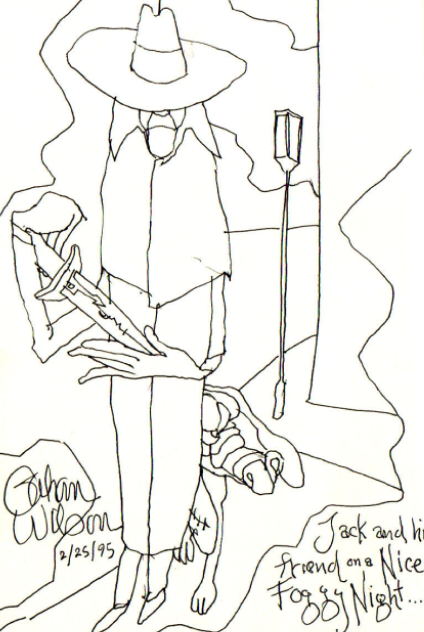 Gahan
Wilson
2/25/95
Jack and hi
friend on a Nice
Foggy Night...